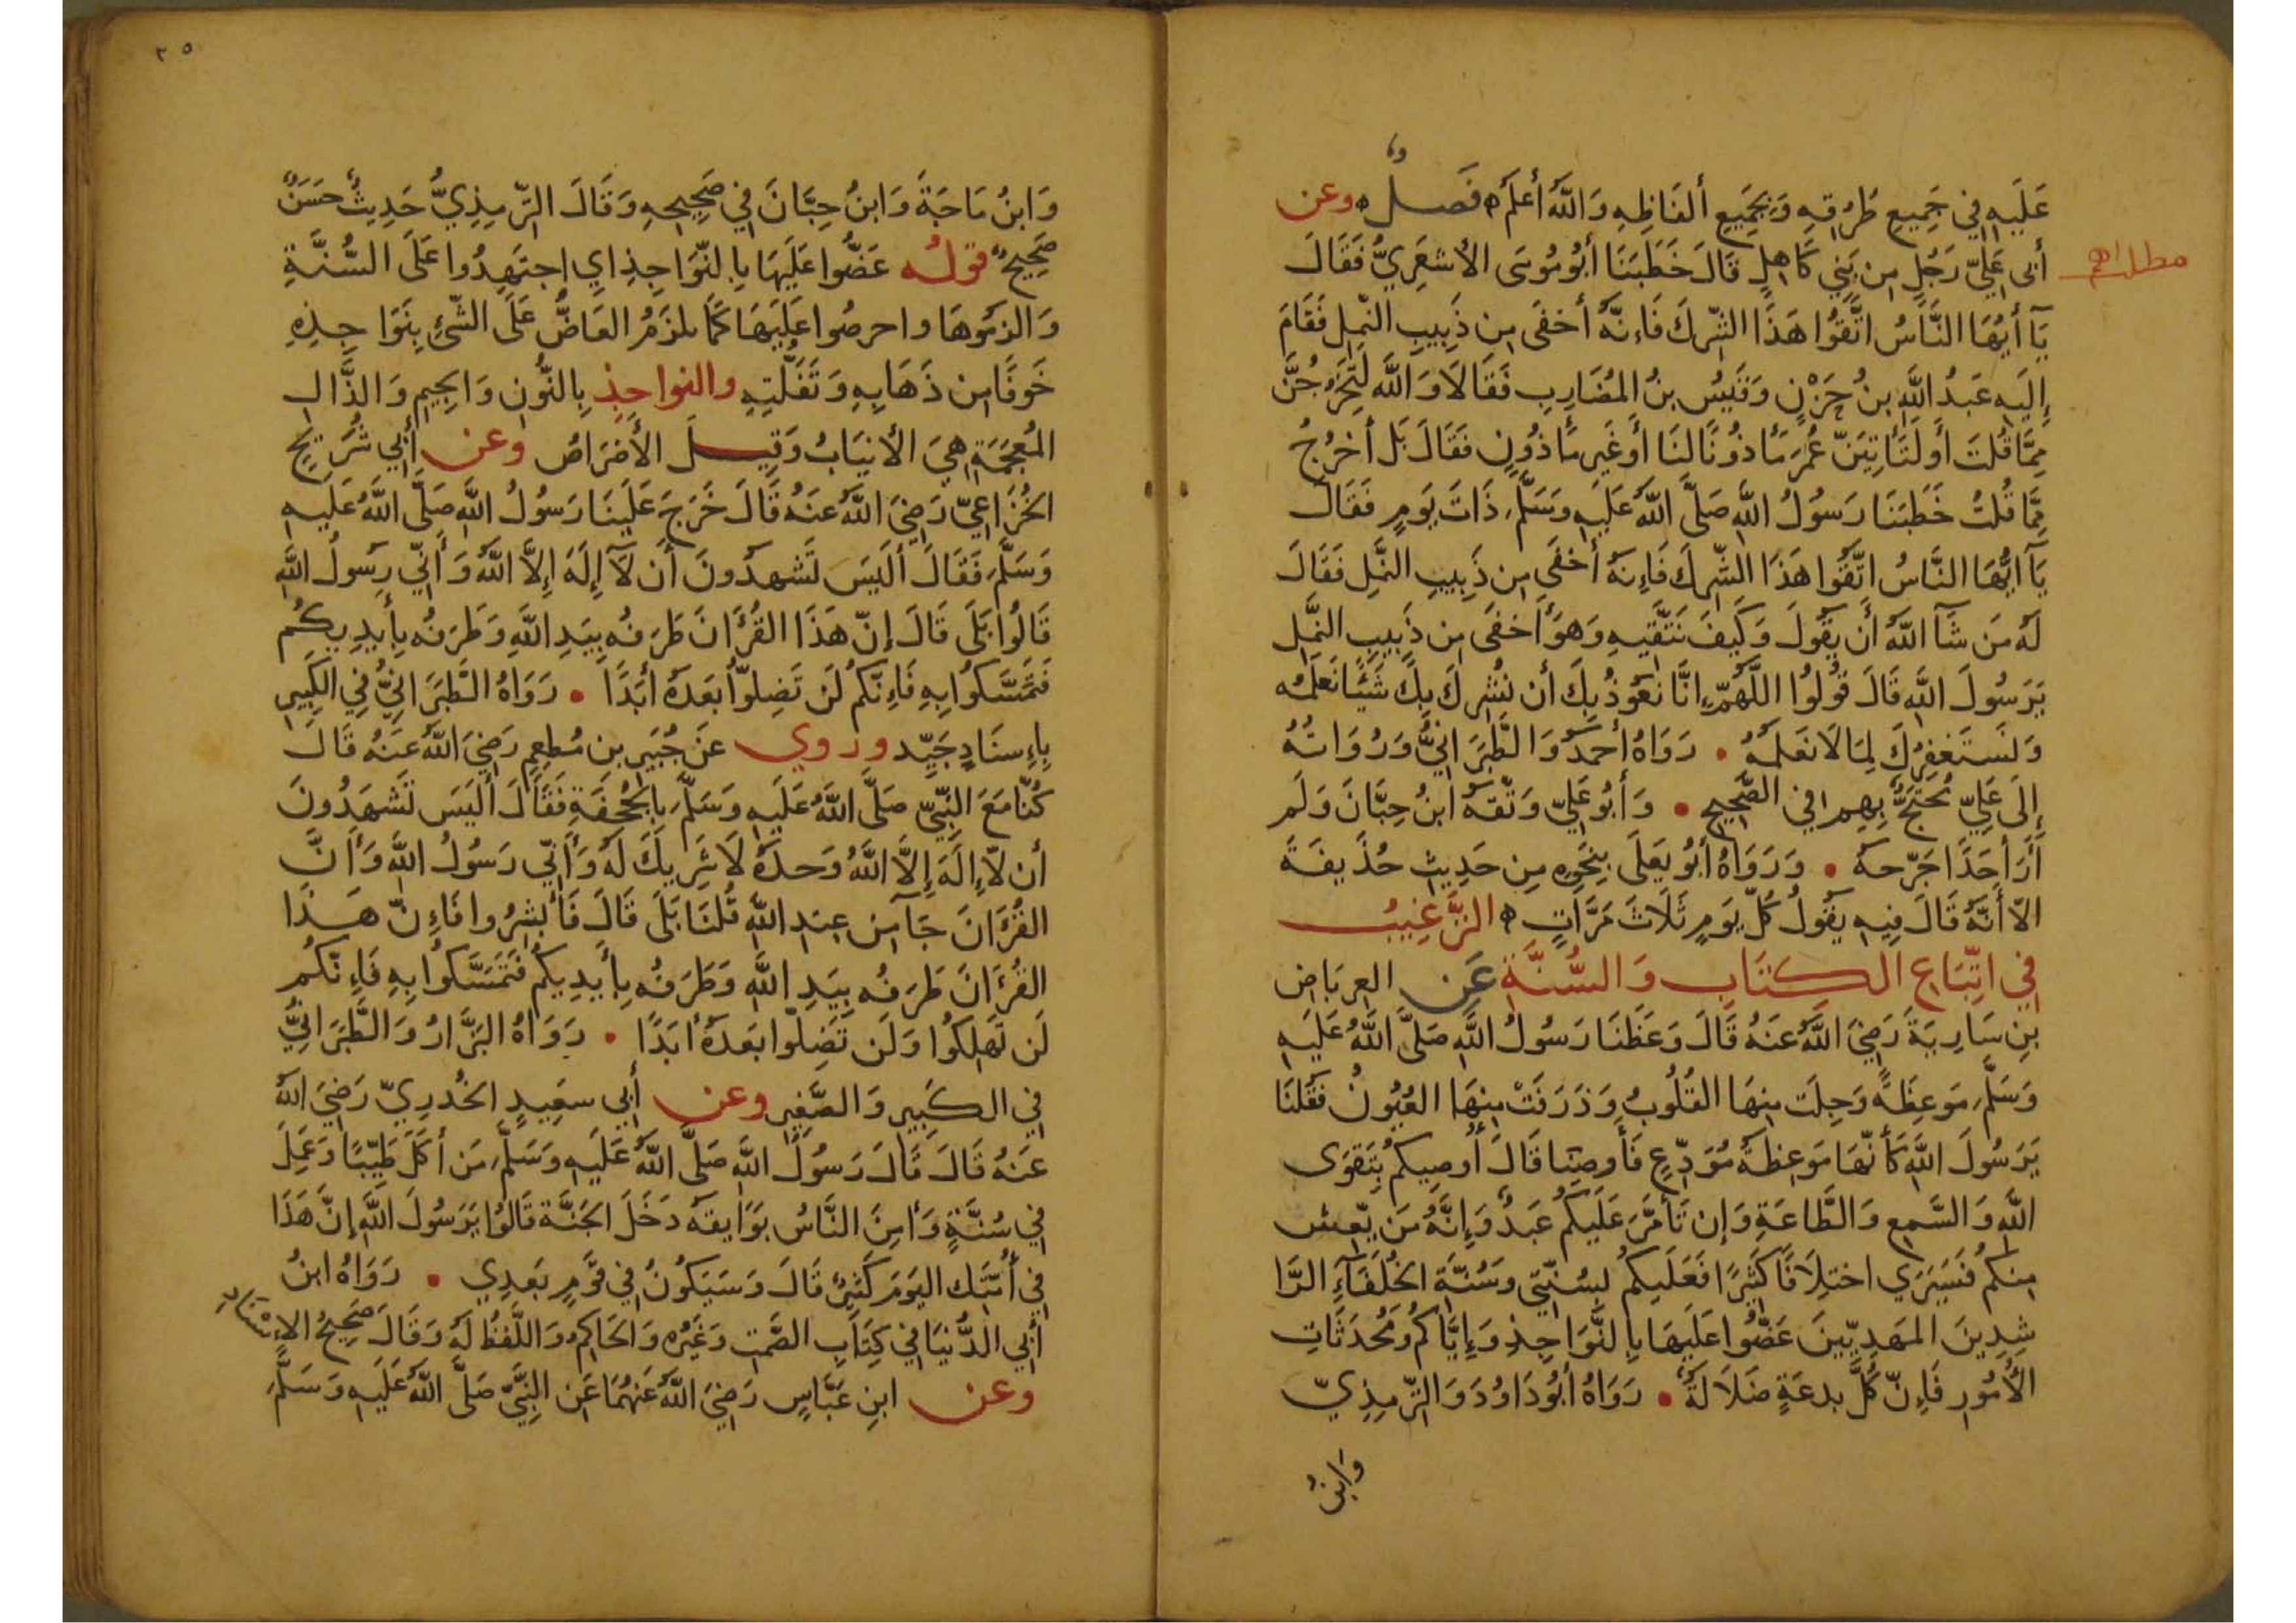 عَلَيهِ فِي جَمِيعِ طُرُقِهِ وَبِجَمِيعِ ألفَاظِهِ وَاللَّهُ أَعلَمُ فَصلٌ وعن
أَبِى عَلِيّ رَجُلٍ مِن بَنِي كَاهِلٍ قَالَ خَطَبَنَا أَبُومُوسَى الأَشعَرِيُّ فَقَالَ
مطلب اهم
يَآ أَيُّهَا النَّاسُ اتَّقُوا هَذَا الشِّركَ فَإنَّهُ أَخفَى مِن دَبِيبِ النَّملِ فَقَامَ
إِلَيهِ عَبدُ اللَّهِ بنُ حَزْنٍ وَقَيسُ بنُ المُضَارِبِ فَقَالَا وَاللَّهِ لَتَخرُجَنَّ
مِمَّا قُلتَ أَو لَنَأتِيَنَّ عُمَرَ مَأذُونًا لنَا أَو غَيرِ مَأذُونٍ فَقَالَ بَل أَخرُجُ
مِمَّا قُلتُ خَطَبَنَا رَسُولُ اللَّهِ صَلَّى اللَّهُ عَلَيهِ وَسَلَّمَ ذَاتَ يَومٍ فَقَالَ
يَآ ايُّهَا النَّاسُ اتَّقُوا هَذَا الشِّركَ فَإِنَّهُ أَخفَى مِن دَبِيبِ النَّملِ فَقَالَ
لَهُ مَن شَآ اللَّهُ أَن يَقُولَ وَكَيفَ نَتَّقِيهِ وَهوَ أَخفَى مِن دَبِيبِ النَّملِ
يَرَسُولَ اللَّهِ قَالَ قُولُوا اللَّهُمَّ إنَّا نَعُوذُ بِكَ أَن نُشرِكَ بِكَ شَيئًا نَعلَمُه
وَنَستَغفِرُكَ لِمَا لَا نَعلَمُهُ . رَوَاهُ أَحمَدُ وَالطَّبَرَانِيُّ وَرُوَاتُهُ
إِلَى عَلِيّ مُحتَجٌّ بِهِم فِي الصَّحِيحِ . وَأَبُو عَلِيّ وَثَّقَهُ ابنُ حِبَّانَ وَلَم
أَرَ أَحَدًا جَرَّحهُ . وَرَوَاهُ أَبُو يَعلَى بِنَحوِهِ مِن حَدِيثِ حُذَيفَةَ
الّا أَنَّهُ قَالَ فِيهِ يَقُولُ كُلَّ يَومٍ ثَلَاثَ مَرَّاتٍ التَّرغِيبُ
فِي اتِّبَاعِ الكتَابِ وَالسُّنَّةِ عَن العِربَاضِ
بنِ سَارِيَةَ رَضِيَ اللَّهُ عَنهُ قَالَ وَعَظَنَا رَسُولُ اللَّهِ صَلَّى اللَّهُ عَلَيهِ
وَسَلَّمَ مَوعِظَةً وَجِلَت مِنهَا القُلُوبُ وَذَرَفَتْ مِنهَا العُيُونُ فَقُلنَا
يَرَسُولَ اللَّهِ كَأَنَّهَا مَوعِظَةُ مُوَدِّعٍ فَأَوصِنَا قَالَ أُوصِيكُم بِتَقوَى
اللَّهِ وَالسَّمعِ وَالطَّاعَةِ وَإِن تَأَمَّرَ عَلَيكُم عَبدٌ وَإِنَّهُ مَن يَّعِش
مِنكُم فَسَيَرَي اختِلَافًا كَثِيرًا فَعَلَيكُم بِسُنَّتِي وَسُنَّةِ الخُلَفَآءِ الرَّا
شِدِينَ المَهدِيّينَ عَضُّوا عَلَيهَا بِالنَّوَاجِذِ وَإِيَّاكُم وَمُحدَثَاتِ
الأُمُورِ فَإِنَّ كُلَّ بِدعَةٍ ضَلَالَةٌ . رَوَاهُ أَبُو دَاوُدَ وَالتِّرمِذِيّ
وَابنُ
٢٥
وَابنُ مَاجَةَ وَابنُ حِبَّانَ فِي صَحِيحِهِ وَقَالَ التِّرمِذِيُّ حَدِيثٌ حَسَنٌ
صَحِيحٌ قولُه عَضُّوا عَلَيهَا بِالنَّوَاجِذِ اي اجتَهِدُوا عَلَى السُّنَّةِ
وَالزَمُوهَا واحرصُوا عَلَيهَا كَمَا يلزَمُ العَاضُّ عَلَى الشَّئِ بِنَوَاجِذِهِ
خَوفًا مِن ذَهَابِهِ وَتَفَلُّتِهِ والنواجِذ بِالنُّونِ وَالجِيمِ وَالذَّالِ
المُعجَمَةِ هِيَ الأَنيَابُ وَقِيلَ الأَضرَاسُ وعن أَبِي شُرَيحٍ
الخُزَاعِيّ رَضِيَ اللَّهُ عَنهُ قَالَ خَرَجَ عَلَينَا رَسُولُ اللَّهِ صَلَّى اللَّهُ عَلَيهِ
وَسَلَّمَ فَقَالَ أَلَيسَ تَشهدُونَ أَن لَآ إِلَهَ إِلَّا اللَّهُ وَأَنِّي رَسُولُ اللَّهِ
قَالُوا بَلَى قَالَ إِنَّ هَذَا القُرآنَ طَرَفُه بِيَدِ اللَّهِ وَطَرَفُه بِأَيدِيكُم
فَتَمَسَّكُوا بِهِ فَإِنَّكُم لَن تَضِلُّوا بَعدَهُ أَبَدًا . رَوَاهُ الطَّبَرَانِيُّ فِي الكَبِيرِ
بِإِسنَادٍ جَيِّدٍ وروي عَن جُبَيرِ بنِ مُطعِمٍ رَضِيَ اللَّهُ عَنهُ قَالَ
كُنَّا مَعَ النَّبِيّ صَلَّى اللَّهُ عَلَيهِ وَسَلَّمَ بِالجُحفَةِ فَقَالَ أَلَيسَ تَشهَدُونَ
أَن لَّآ إِلَهَ إِلَّا اللَّهُ وَحدَهُ لَا شَرِيكَ لَهُ وَأَنِّي رَسُولُ اللَّهِ وَأَنَّ
القُرآنَ جَآ مِن عِندِ اللَّهِ قُلنَا بَلَى قَالَ فَأَبشِرُوا فَإِنَّ هَذَا
القُرآنَ طَرَفُه بِيَدِ اللَّهِ وَطَرَفُه بِأَيدِيكُم فَتَمَسَّكُوا بِهِ فَإِنَّكُم
لَن تَهلِكُوا وَلَن تَضِلُّوا بَعدَهُ أَبَدًا . رَوَاهُ البَزَّارُ وَالطَّبَرَانِيُّ
فِي الكَبِيرِ وَالصَّغِيرِ وعن أَبِي سَعِيدٍ الخُدرِيّ رَضِيَ اللَّهُ
عَنهُ قَالَ قَالَ رَسُولُ اللَّهِ صَلَّى اللَّهُ عَلَيهِ وَسَلَّمَ مَن أَكَلَ طَيِّبًا وَعَمِلَ
فِي سُنَّةٍ وَأَمِنَ النَّاسُ بَوَايِقَهُ دَخَلَ الجَنَّةَ قَالُوا يَرَسُولَ اللَّهِ إِنَّ هَذَا
فِي أُمَّتِكَ اليَومَ كَثِيرٌ قَالَ وَسَيَكُونُ فِي قَومٍ بَعدِي . رَوَاهُ ابنُ
أَبِي الدُّنيَا فِي كِتَابِ الصَّمتِ وَغَيرُه وَالحَاكِمُ وَاللَّفظُ لَهُ وَقَالَ صَحِيحُ الإِسْنَادِ
وعن ابنِ عَبَّاسٍ رَضِيَ اللَّهُ عَنهُمَا عَنِ النَّبِيّ صَلَّى اللَّهُ عَلَيهِ وَسَلَّمَ